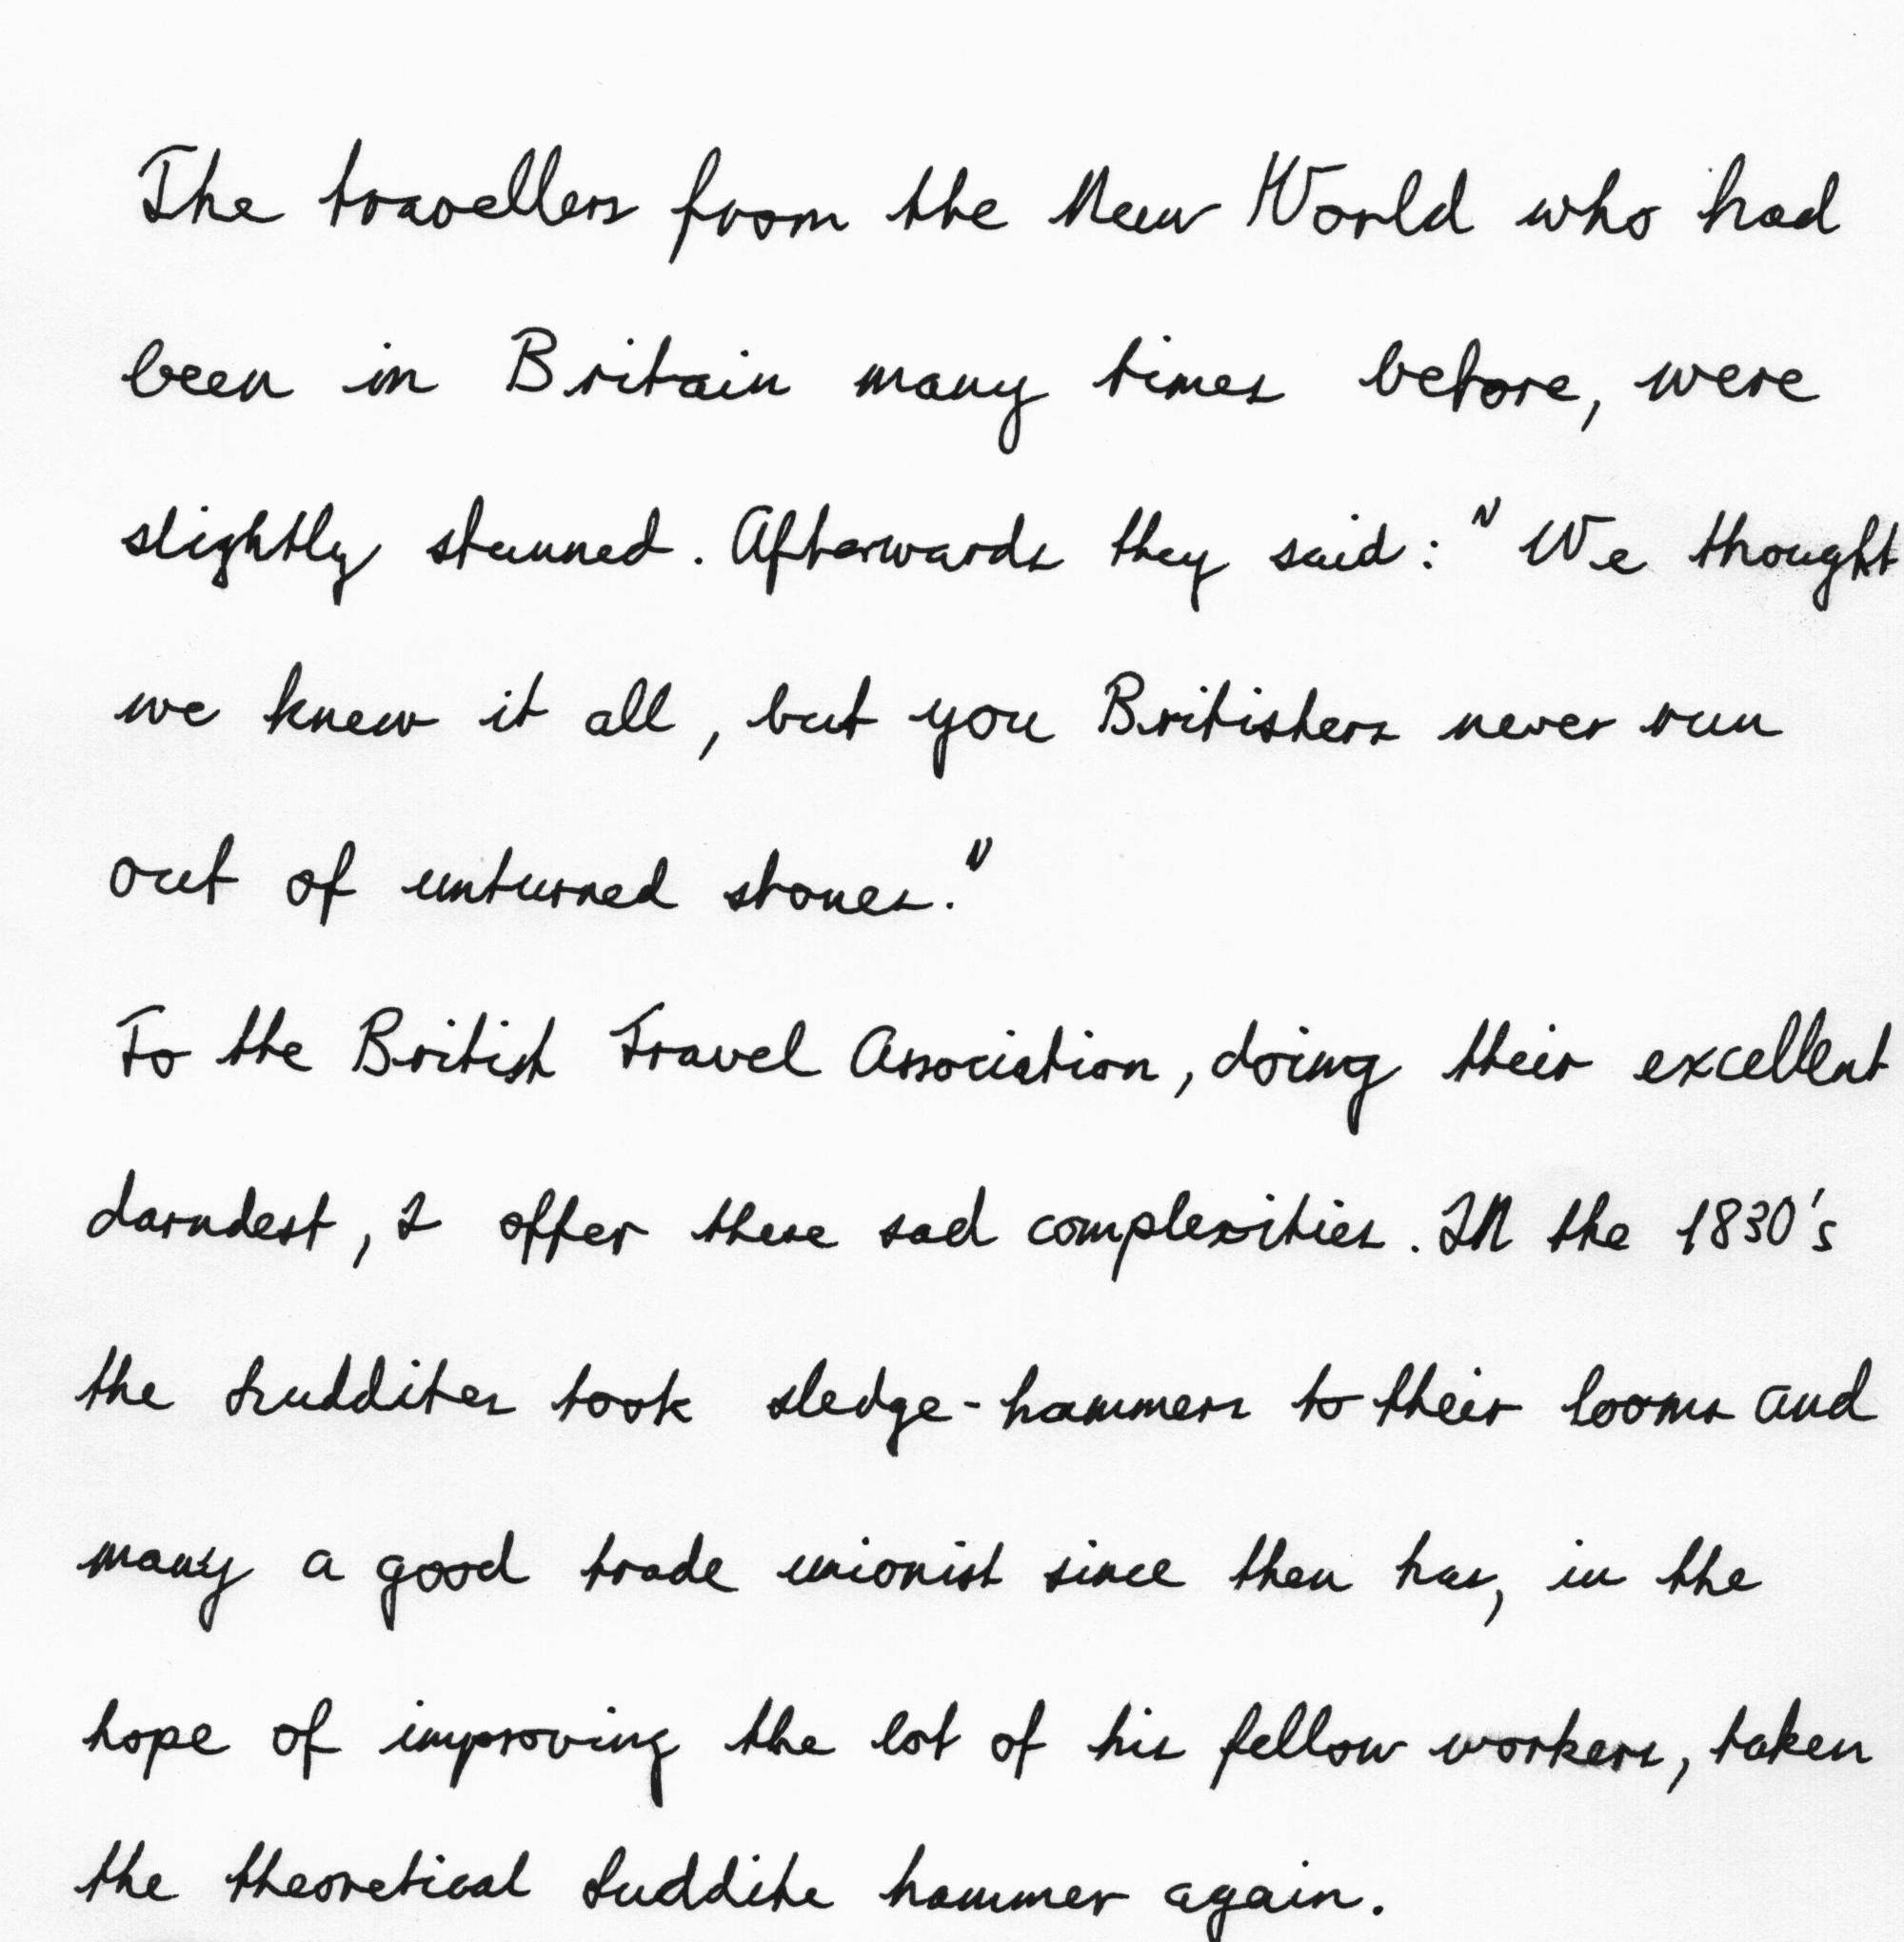 The travellers from the New World who had
been in Britain many times before, were
slightly stunned. Afterwards they said: "We thought
we knew it all, but you Britishers never run
out of unturned stones."
To the British Travel Association, doing their excellent
darndest, I offer these sad complexities. IN the 1830's
the Luddites took sledge-hammers to their looms and
many a good trade unionist since then has, in the
hope of improving the lot of his fellow workers, taken
the theoretical Luddite hammer again.